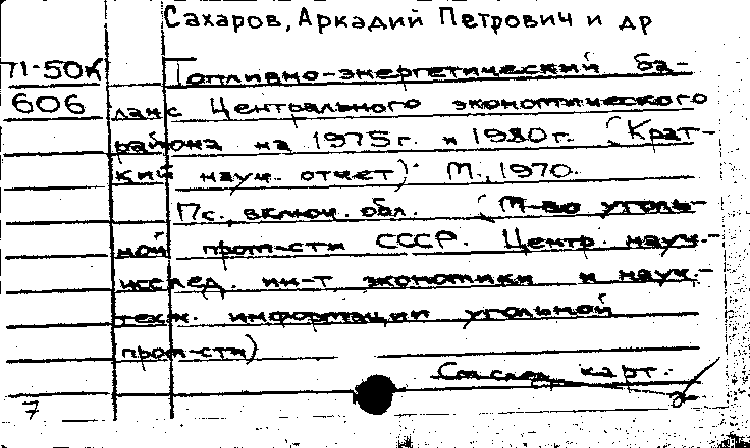 Сахаров, Аркадий Петрович и др
71-50К Топливно-энергетический ба-
606 ланс Центрального экономического
района на 1975г. и 1980г. (Крат-
кий науч. отчет). М., 1970.
17с., включ. обл. (М-во уголь-
ной пром-сти СССР. Центр. науч.-
исслед. ин-т экономики и науч.-
техн. информации угольной
пром-сти)
См. след. карт.
7